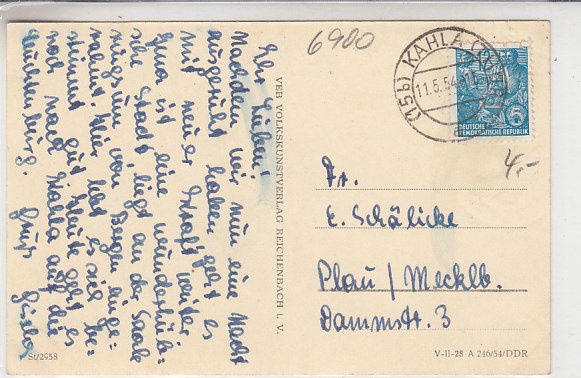 Ihr Lieben!
Nachdem wir nun eine Nacht
ausgeruht haben geht es
mit neuer Kraft weiter.
Jena ist eine wunderschö-
ne Stadt, liegt an der Saale
rings um von Bergen einge-
rahmt. Hier lebt es sich be-
stimmt gut. Heute geht es
noch nach Kahla auf die
Leuchtenburg. Gruß
VEB VOLKSKUNSTVERLAG REICHENBACH I. V.
St/2958
6900
(15b) KAHLA (THÜR)
11.5.54
DEUTSCHE
DEMOKRATISCHE REPUBLIK
4,-
Fr.
E. Schälicke
Plau / Mecklb.
Dammstr. 3
V-11-28 A 246/54/DDR